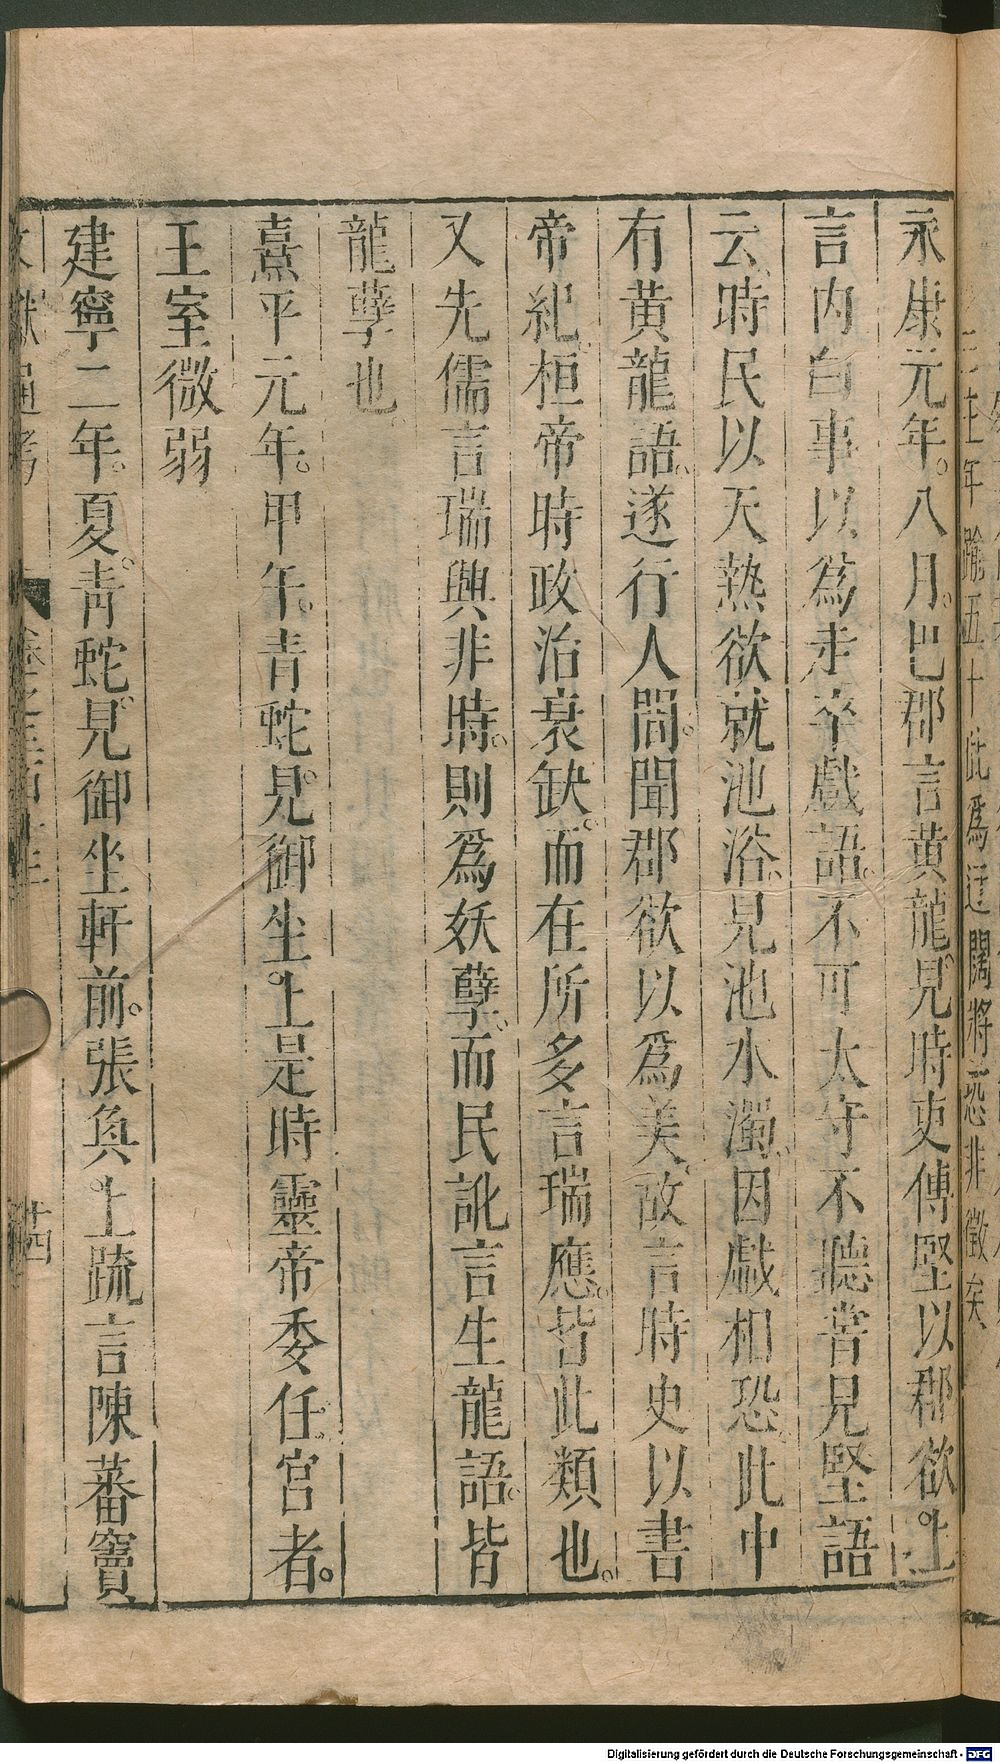 三年年踰五十此爲迂闊將恐非徵矣
永康元年。八月。巴郡言黃龍見時吏傅堅以郡欲上
言內白事以爲走卒戲語。不可太守不聽嘗見堅語
云、時民以天熱欲就池浴。見池水濁。因戲相恐此中
有黃龍語。遂行人間。聞郡欲以爲美。故言時史以書
帝紀桓帝時政治衰缺。而在所多言瑞應。皆此類也。
又先儒言瑞興非時。則爲妖孽。而民訛言生龍語。皆
龍孽也。
熹平元年。甲午。青蛇見。御坐。上是時靈帝委任宮者。
王室微弱
建寧二年。夏。青蛇見御坐軒前。張奐上疏言陳蕃竇
文獻通考
廿四
Digitalisierung gefördert durch die Deutsche Forschungsgemeinschaft - DFG